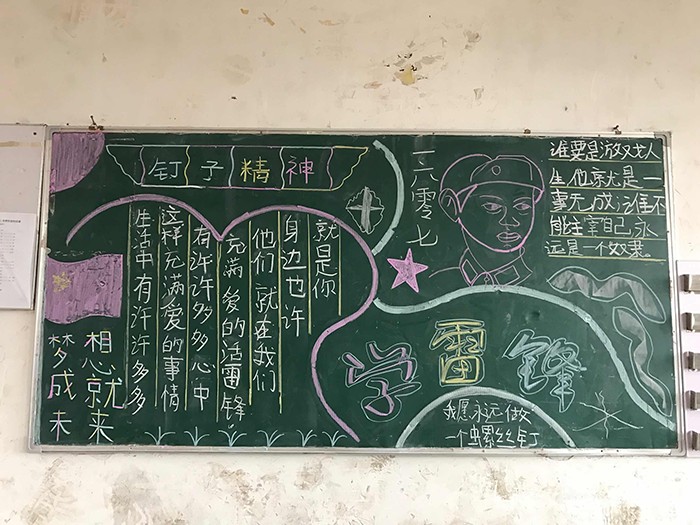 钉子精神
梦想
成就
未来
生活中有许许多多
这样充满爱的事情
有许许多多心中
充满爱的活雷锋
他们就在我们
身边也许
就是你
一六零七
谁要是游戏人
生他就是一
事无成，谁不
能主宰自己，永
远是一个奴隶。
学雷锋
我愿永远做
一个螺丝钉